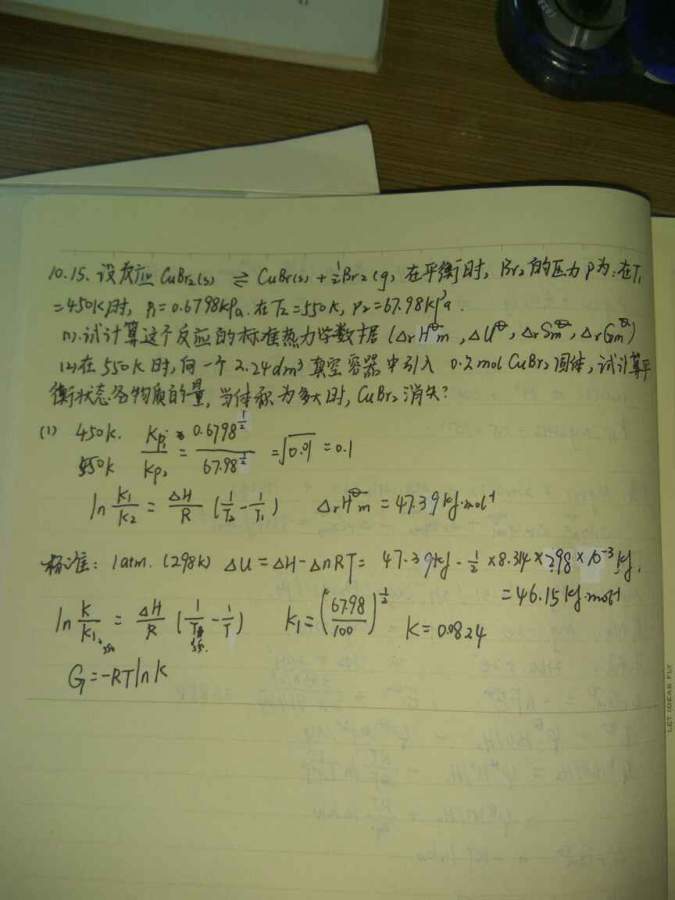 10.15. 设反应 CuBr₂(s) ⇌ CuBr(s) + ½Br₂(g, 在平衡时, Br₂的压力P为: 在T₁
=450K时, P₁=0.6798kPa. 在T₂=550K, P₂=67.98kPa.
(1). 试计算这个反应的标准热力学数据 (ΔrH^⊖m, ΔU^⊖, ΔrSm^⊖, ΔrGm^⊖)
(2) 在550K时, 向一个2.24dm³真空容器中引入 0.2mol CuBr₂固体, 试计算平
衡状态各物质的量, 当体积为多大时, CuBr₂消失?
(1) 450K. Kp₁/Kp₂ = 0.6798^½/67.98^½ = √0.01 = 0.1
550K
ln K₁/K₂ = ΔH/R (1/T₂ - 1/T₁) ΔrH^⊖m = 47.39kJ·mol⁻¹
标准: 1atm. (298K) ΔU = ΔH - ΔnRT = 47.39kJ - ½ × 8.314 × 298 × 10⁻³ kJ.
= 46.15kJ·mol⁻¹
ln K/K₁ = ΔH/R (1/T - 1/T) K₁ = (67.98/100)^½ K = 0.0824
G = -RTlnK
LET IDEAS FLY